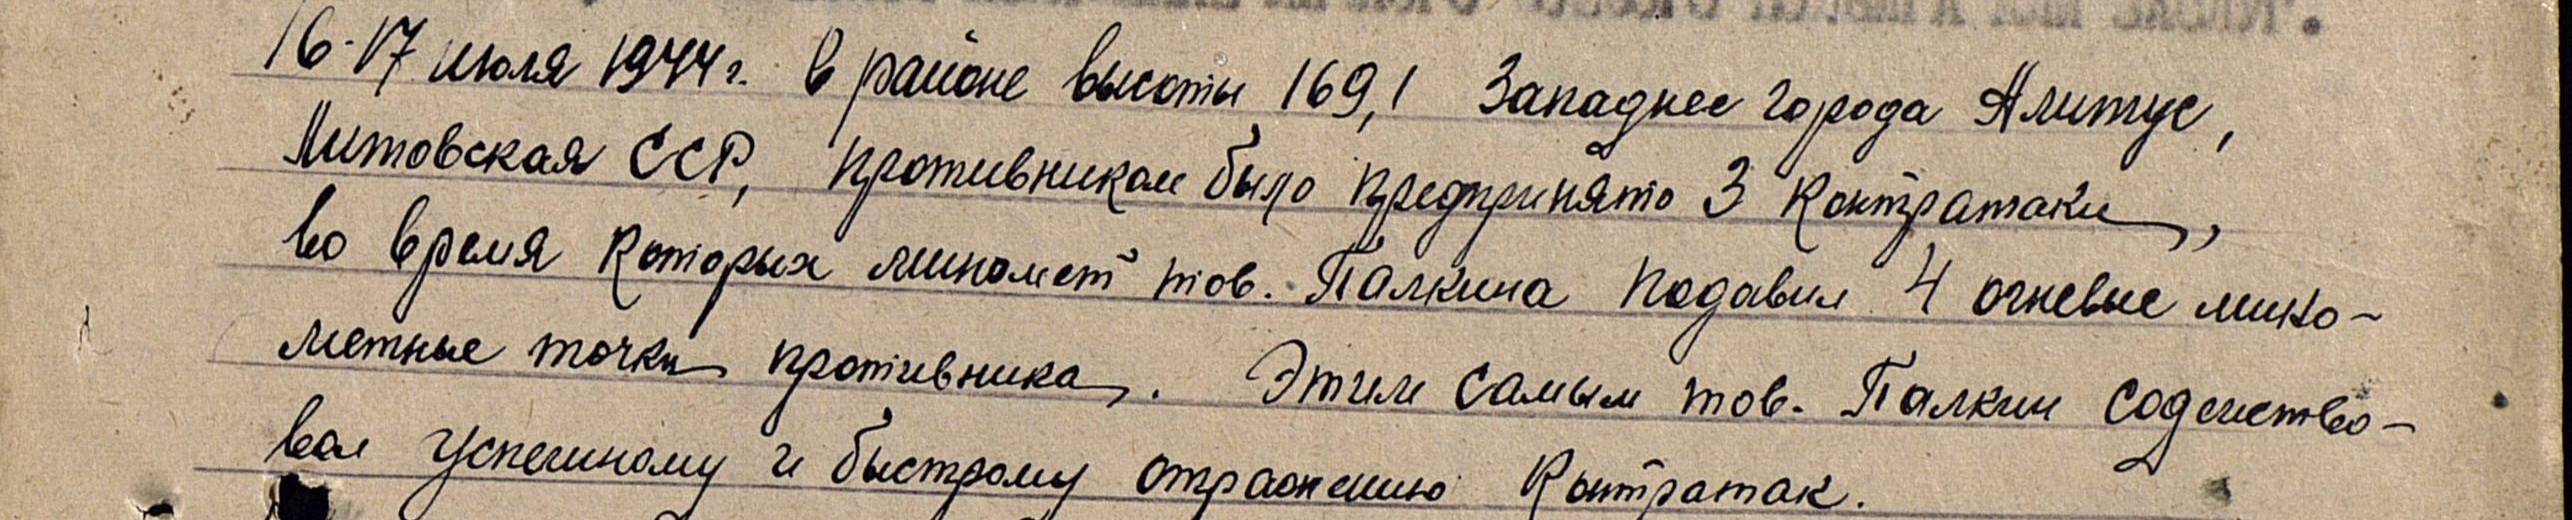 16-17 июля 1944 г. в районе высоты 169,1 Западнее города Алитус,
Литовская ССР, противником было предпринято 3 контратаки,
во время которых миномет тов. Палкина подавил 4 огневые мино-
метные точки противника. Этим самым тов. Палкин содейство-
вал успешному и быстрому отражению контратак.